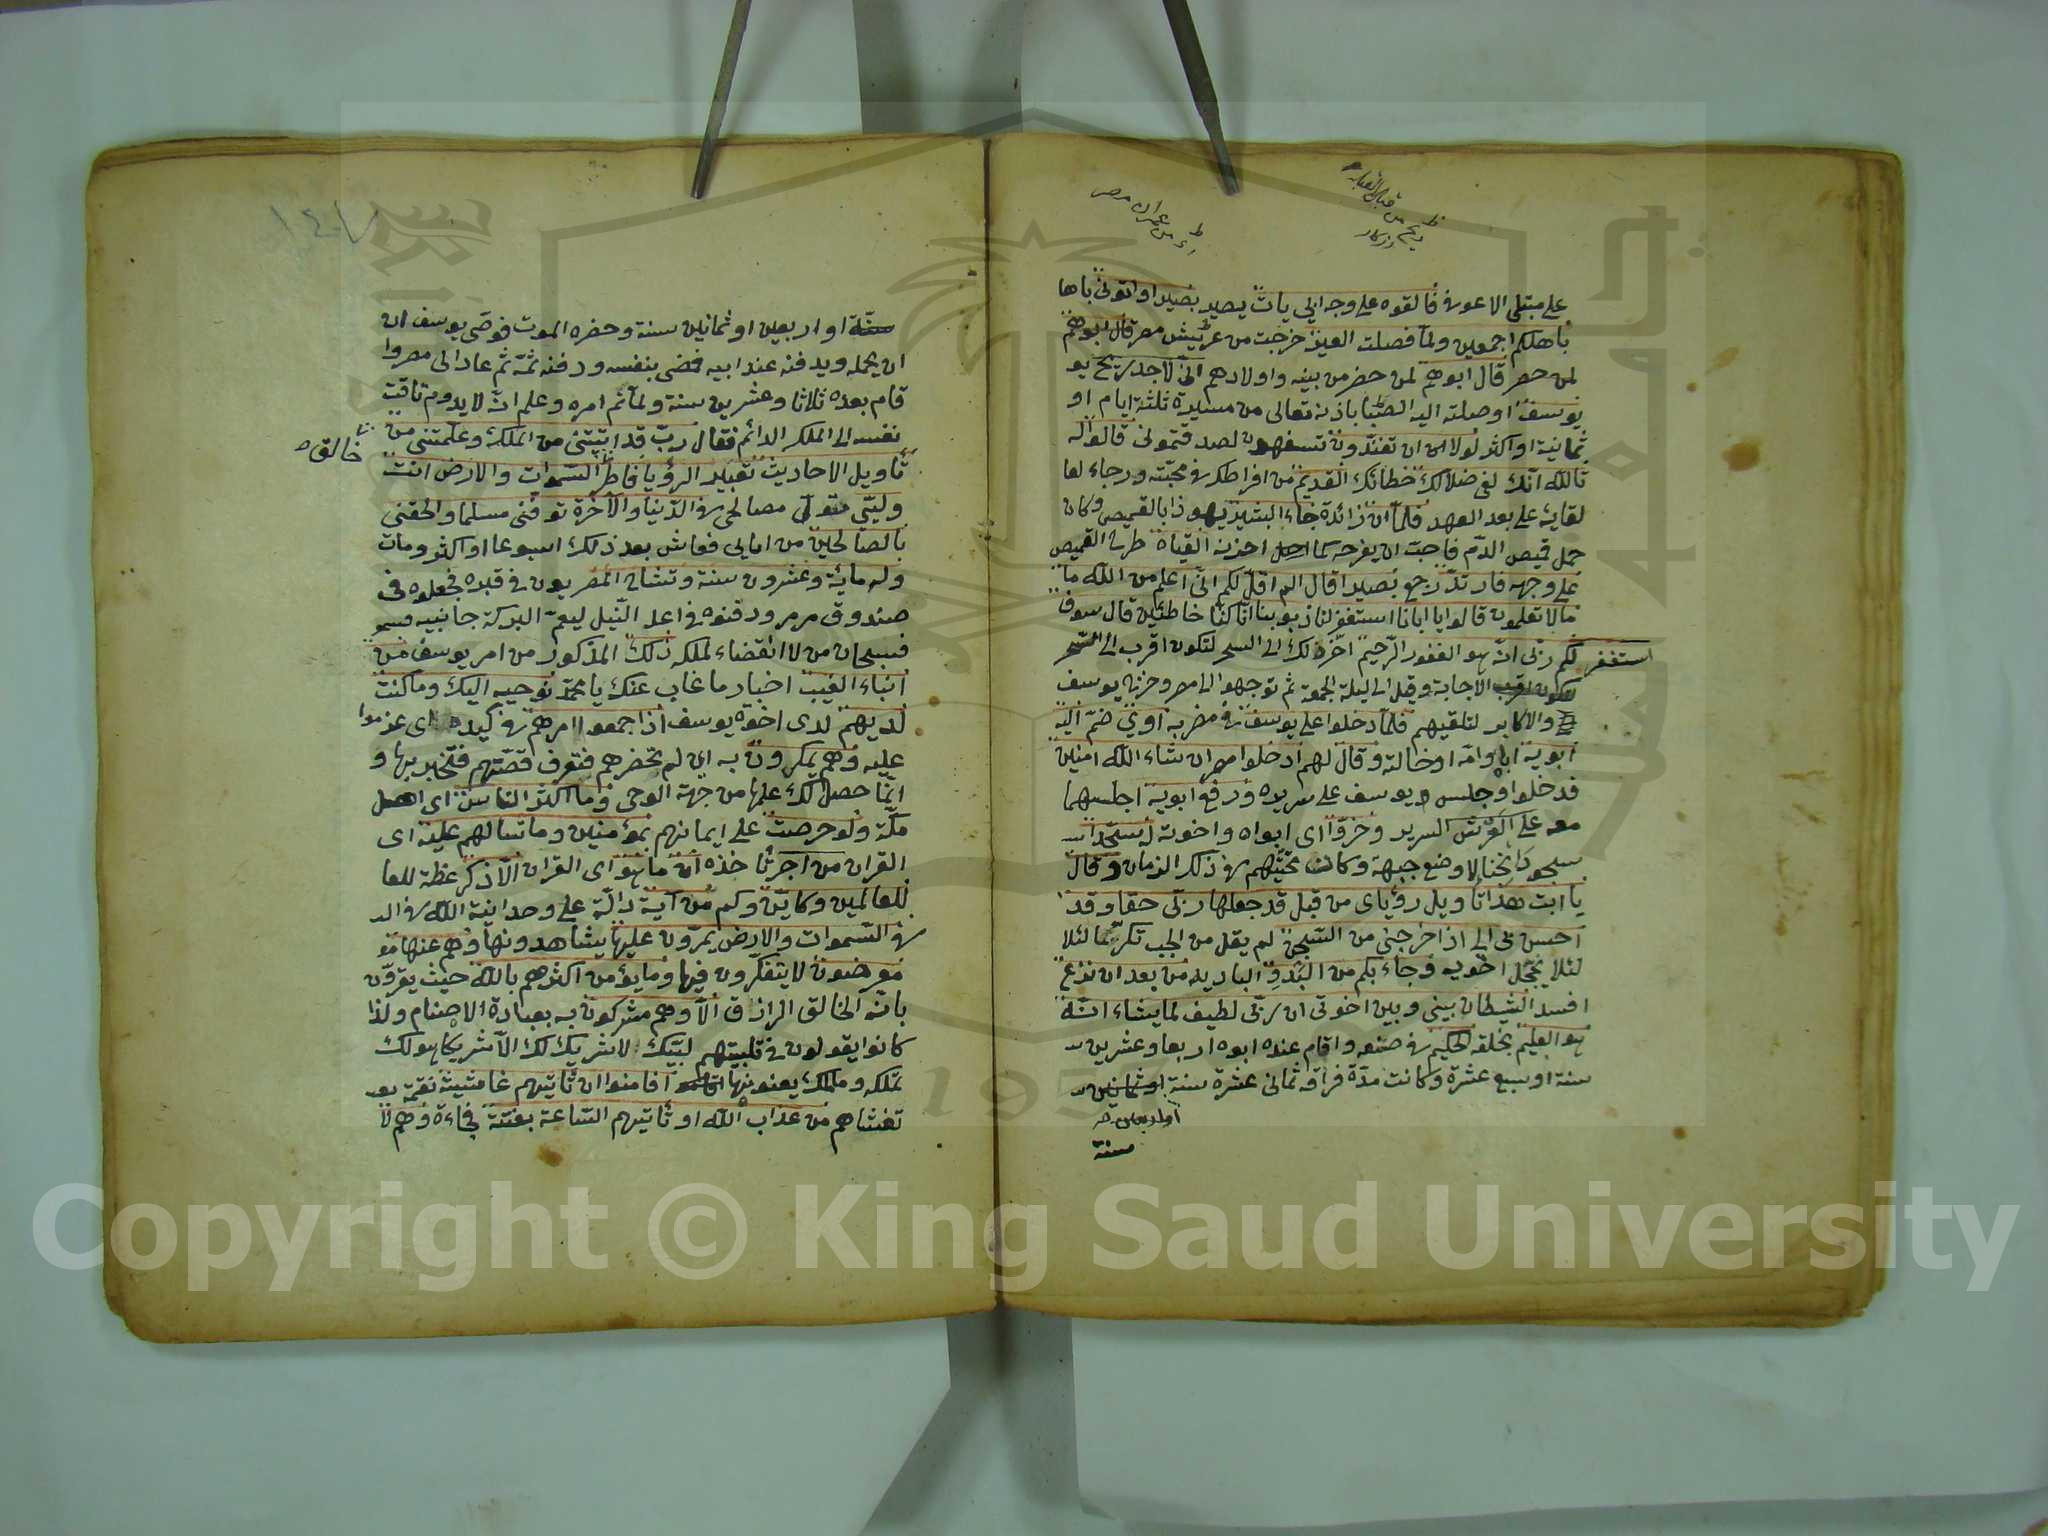 ريح من قبل القبلة
ازكار
اى من عمران مصر
على مبتلى الا عوفى فالقوه على وجه ابى يات يصير بصيرا واتونى باها
باهلكم اجمعين ولما فصلت العير خرجت من عريش مصر قال ابوهم
لمن حضر قال ابوهم لمن حضر من بنيه واولادهم انى لاجد ريح يو
يوسف اوصلته اليه الصبا باذنه تعالى من مسيرة ثلثة ايام او
ثمانية او اكثر لولا ان تفندون تسفهون لصدقتمونى قالوا له
تالله انك لفى ضلالك خطائك القديم من افراطك فى محبته ورجاء لقا
لقائه على بعد العهد فلما ان زائدة جاء البشير يهوذا بالقميص وكان
حمل قميص الدم فاحب ان يفرحه كما احزنه القياه طرح القميص
على وجهه فارتد رجع بصيرا قال الم اقل لكم انى اعلم من الله ما
ما لا تعلمون قالوا يا ابانا استغفر لنا ذنوبنا انا كنا خاطئين قال سوف
استغفر لكم ربى انه هو الغفور الرحيم اخر ذلك الى السحر لتكون اقرب الى السحر
الاجابة وقيل الى ليلة الجمعة ثم توجهوا الى مصر وخرج يوسف
والاكابر لتلقيهم فلما دخلوا على يوسف فى مضربه اوى ضم اليه
ابويه اباه وامه او خالته وقال لهم ادخلوا مصر ان شاء الله امنين
فدخلوا وجلس يوسف على سريره ورفع ابويه اجلسهما
معه على العرش السرير وخروا اى ابواه واخوته له سجدا
سجود انحناء لا وضع جبهة وكانت تحيتهم فى ذلك الزمان وقال
يا ابت هذا تاويل رؤياى من قبل قد جعلها ربى حقا وقد
احسن بى الى اذ اخرجنى من السجن لم يقل من الجب تكرما لئلا
لئلا يخجل اخوته وجاء بكم من البدو البادية من بعد ان نزغ
افسد الشيطان بينى وبين اخوتى ان ربى لطيف لما يشاء انه
هو العليم بخلقه الحكيم فى صنعه واقام عنده ابوه اربعا وعشرين
سنة او سبع عشرة وكانت مدة فراقه ثمانى عشرة سنة او ثمانين
او اربعين
سنة
١٤٧
سنة او اربعين او ثمانين سنة وحضره الموت فوصى يوسف ان
ان يحمله ويدفنه عند ابيه فمضى بنفسه ودفنه ثمة ثم عاد الى مصر وا
قام بعده ثلاثا وعشرين سنة ولما تم امره وعلم انه لا يدوم تاقت
نفسه الى الملك الدائم فقال رب قد اتيتنى من الملك وعلمتنى من
تاويل الاحاديث تعبير الرؤيا فاطر السموات والارض انت
خالق
وليى متولى مصالحى فى الدنيا والآخرة توفنى مسلما والحقنى
بالصالحين من ابائى فعاش بعد ذلك اسبوعا او اكثر ومات
وله مائة وعشرون سنة وتشاح المصريون فى قبره فجعلوه فى
صندوق مرمر ودفنوه فى اعلا النيل ليعم البركة جانبيه
فسبحان من لا انقضاء لملكه ذلك المذكور من امر يوسف من
انباء الغيب اخبار ما غاب عنك يا محمد نوحيه اليك وما كنت
لديهم لدى اخوة يوسف اذ اجمعوا امرهم فى كيده اى عزموا
عليه وهم يمكرون به اى لم تحضرهم فتعرف قصتهم فتخبر بها و
انما حصل لك علمها من جهة الوحى وما اكثر الناس اى اهل
مكة ولو حرصت على ايمانهم بمؤمنين وما تسالهم عليه اى
القران من اجر تاخذه ان ما هو اى القران الا ذكر عظة للعا
للعالمين وكاين وكم من آية دالة على وحدانية الله فى الد
فى السموات والارض يمرون عليها يشاهدونها وهم عنها مو
معرضون لا يتفكرون فيها وما يؤمن اكثرهم بالله حيث يقرون
بانه الخالق الرازق الا وهم مشركون به بعبادة الاصنام ولذا
كانوا يقولون فى تلبيتهم لبيك لا شريك لك الا شريكا هو لك
تملكه وما ملك يعنونها افامنوا ان تاتيهم غاشية نقمة
تغشاهم من عذاب الله او تاتيهم الساعة بغتة فجاءة وهم لا
Copyright © King Saud University